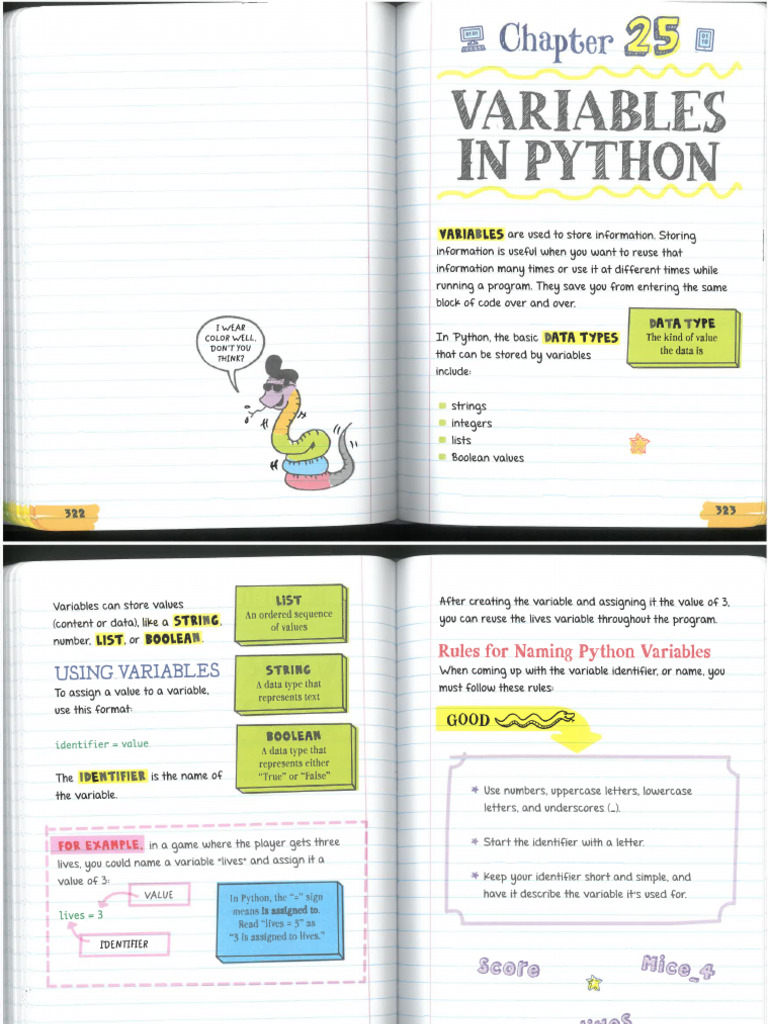 I WEAR
COLOR WELL,
DON'T YOU
THINK?
322
Chapter 25
VARIABLES
IN PYTHON
VARIABLES are used to store information. Storing
information is useful when you want to reuse that
information many times or use it at different times while
running a program. They save you from entering the same
block of code over and over.
In Python, the basic DATA TYPES
that can be stored by variables
include:
DATA TYPE
The kind of value
the data is
strings
integers
lists
Boolean values
323
Variables can store values
(content or data), like a STRING,
number, LIST, or BOOLEAN.
USING VARIABLES
To assign a value to a variable,
use this format:
identifier = value
The IDENTIFIER is the name of
the variable.
LIST
An ordered sequence
of values
STRING
A data type that
represents text
BOOLEAN
A data type that
represents either
"True" or "False"
FOR EXAMPLE, in a game where the player gets three
lives, you could name a variable "lives" and assign it a
value of 3:
VALUE
lives = 3
IDENTIFIER
In Python, the "=" sign
means is assigned to.
Read "lives = 3" as
"3 is assigned to lives."
After creating the variable and assigning it the value of 3,
you can reuse the lives variable throughout the program.
Rules for Naming Python Variables
When coming up with the variable identifier, or name, you
must follow these rules:
GOOD
* Use numbers, uppercase letters, lowercase
letters, and underscores (_).
* Start the identifier with a letter.
* Keep your identifier short and simple, and
have it describe the variable it's used for.
Score
Mice_4